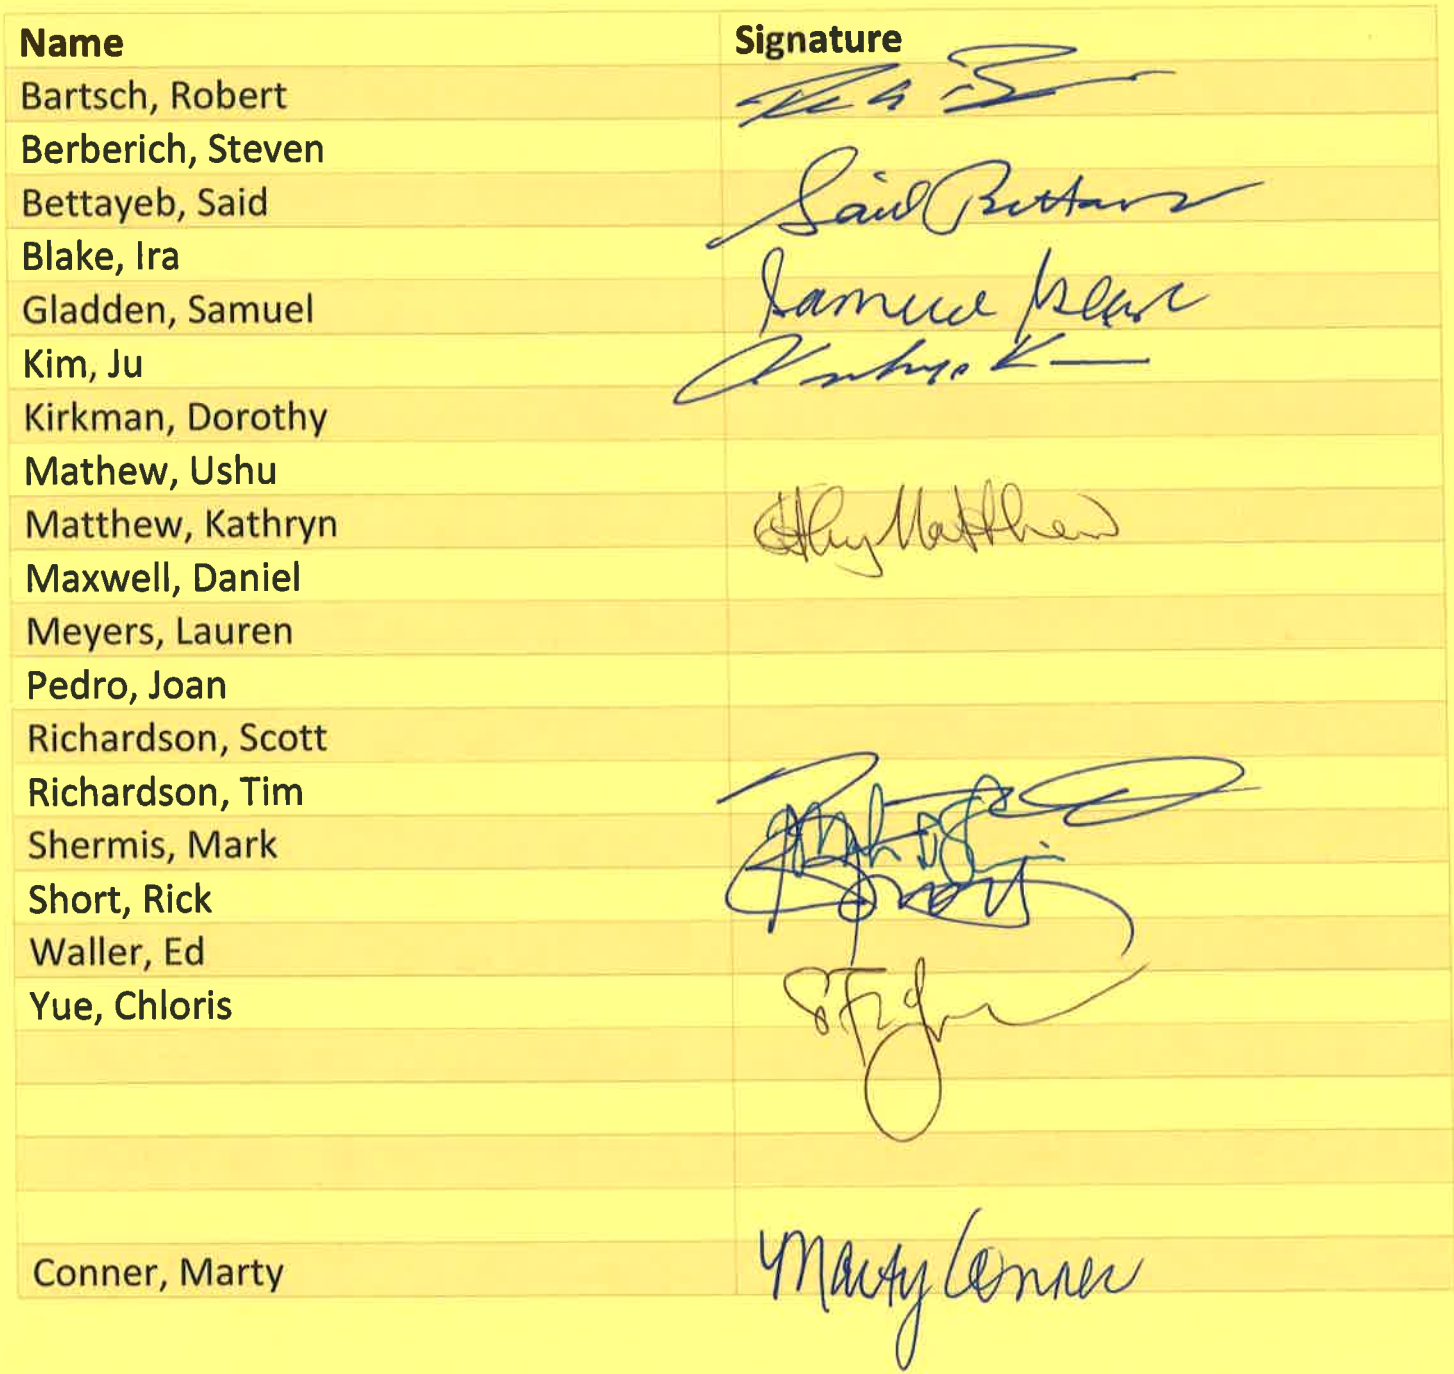 Name Signature
Bartsch, Robert
Berberich, Steven
Bettayeb, Said Said Bettayeb
Blake, Ira
Gladden, Samuel Samuel
Kim, Ju
Kirkman, Dorothy
Mathew, Ushu
Matthew, Kathryn Kathy Matthew
Maxwell, Daniel
Meyers, Lauren
Pedro, Joan
Richardson, Scott
Richardson, Tim
Shermis, Mark
Short, Rick
Waller, Ed
Yue, Chloris
Conner, Marty Marty Conner